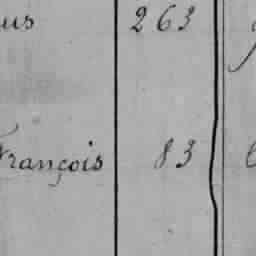 us 263
François 83